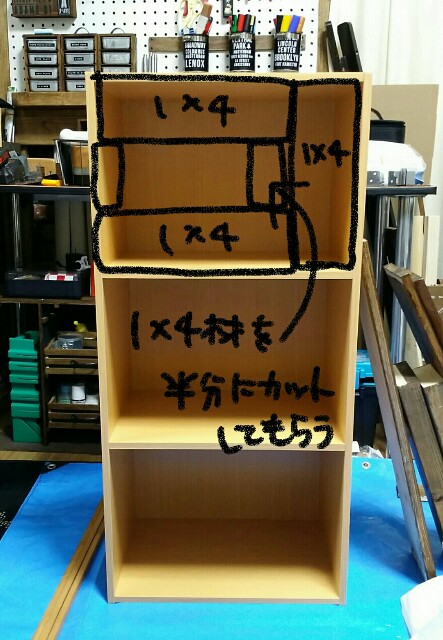 BROADWAY
LENOX
PARK &
LINCOLN
CENTER
BROOKLYN
1×4
1×4
1×4
1×4材を
半分にカット
してもらう